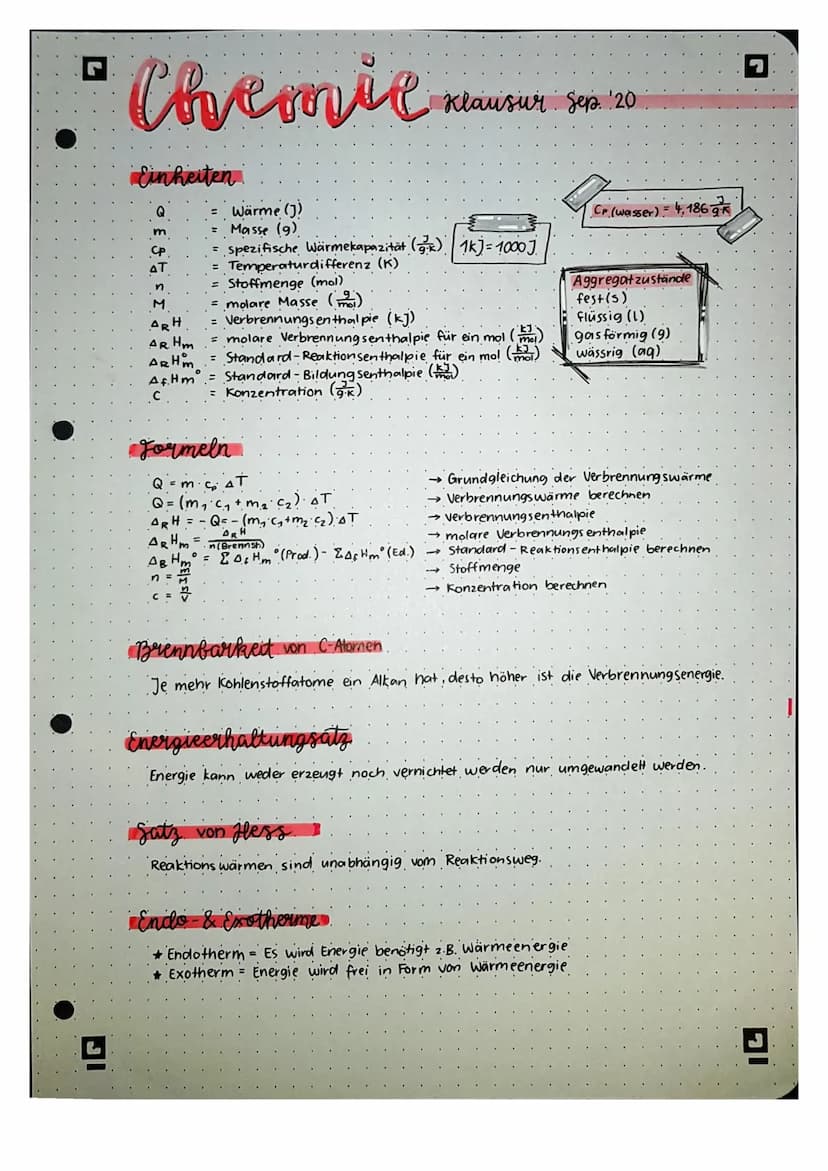 Chemie Klausur Sep. '20
Einheiten
Q = Wärme (J)
m = Masse (g)
Cp = spezifische Wärmekapazität (J/g·K)
ΔT = Temperaturdifferenz (K)
n = Stoffmenge (mol)
M = molare Masse (g/mol)
ΔRH = Verbrennungsenthalpie (kJ)
ΔRHm = molare Verbrennungsenthalpie für ein mol (kJ/mol)
ΔRHm° = Standard-Reaktionsenthalpie für ein mol (kJ/mol)
ΔfHm° = Standard-Bildungsenthalpie (kJ/mol)
C = Konzentration (J/g·K)
1kJ = 1000J
Cp (wasser) = 4,186 J/g·K
Aggregatzustände
fest (s)
flüssig (l)
gasförmig (g)
wässrig (aq)
Formeln
Q = m · cp · ΔT → Grundgleichung der Verbrennungswärme
Q = (m1 · c1 + m2 · c2) · ΔT → Verbrennungswärme berechnen
ΔRH = -Q = -(m1·c1+m2·c2)·ΔT → Verbrennungsenthalpie
ΔRHm = ΔRH/n(Brennst) → molare Verbrennungsenthalpie
ΔBHm° = ΣΔfHm°(Prod.) - ΣΔfHm°(Ed.) → Standard-Reaktionsenthalpie berechnen
n = m/M → Stoffmenge
c = n/V → Konzentration berechnen
Brennbarkeit von C-Atomen
Je mehr Kohlenstoffatome ein Alkan hat, desto höher ist die Verbrennungsenergie.
Energieerhaltungsatz
Energie kann weder erzeugt noch vernichtet werden nur umgewandelt werden.
Satz von Hess
Reaktionswärmen sind unabhängig vom Reaktionsweg.
Endo- & Exotherme
★ Endotherm = Es wird Energie benötigt z.B. Wärmeenergie
★ Exotherm = Energie wird frei in Form von Wärmeenergie